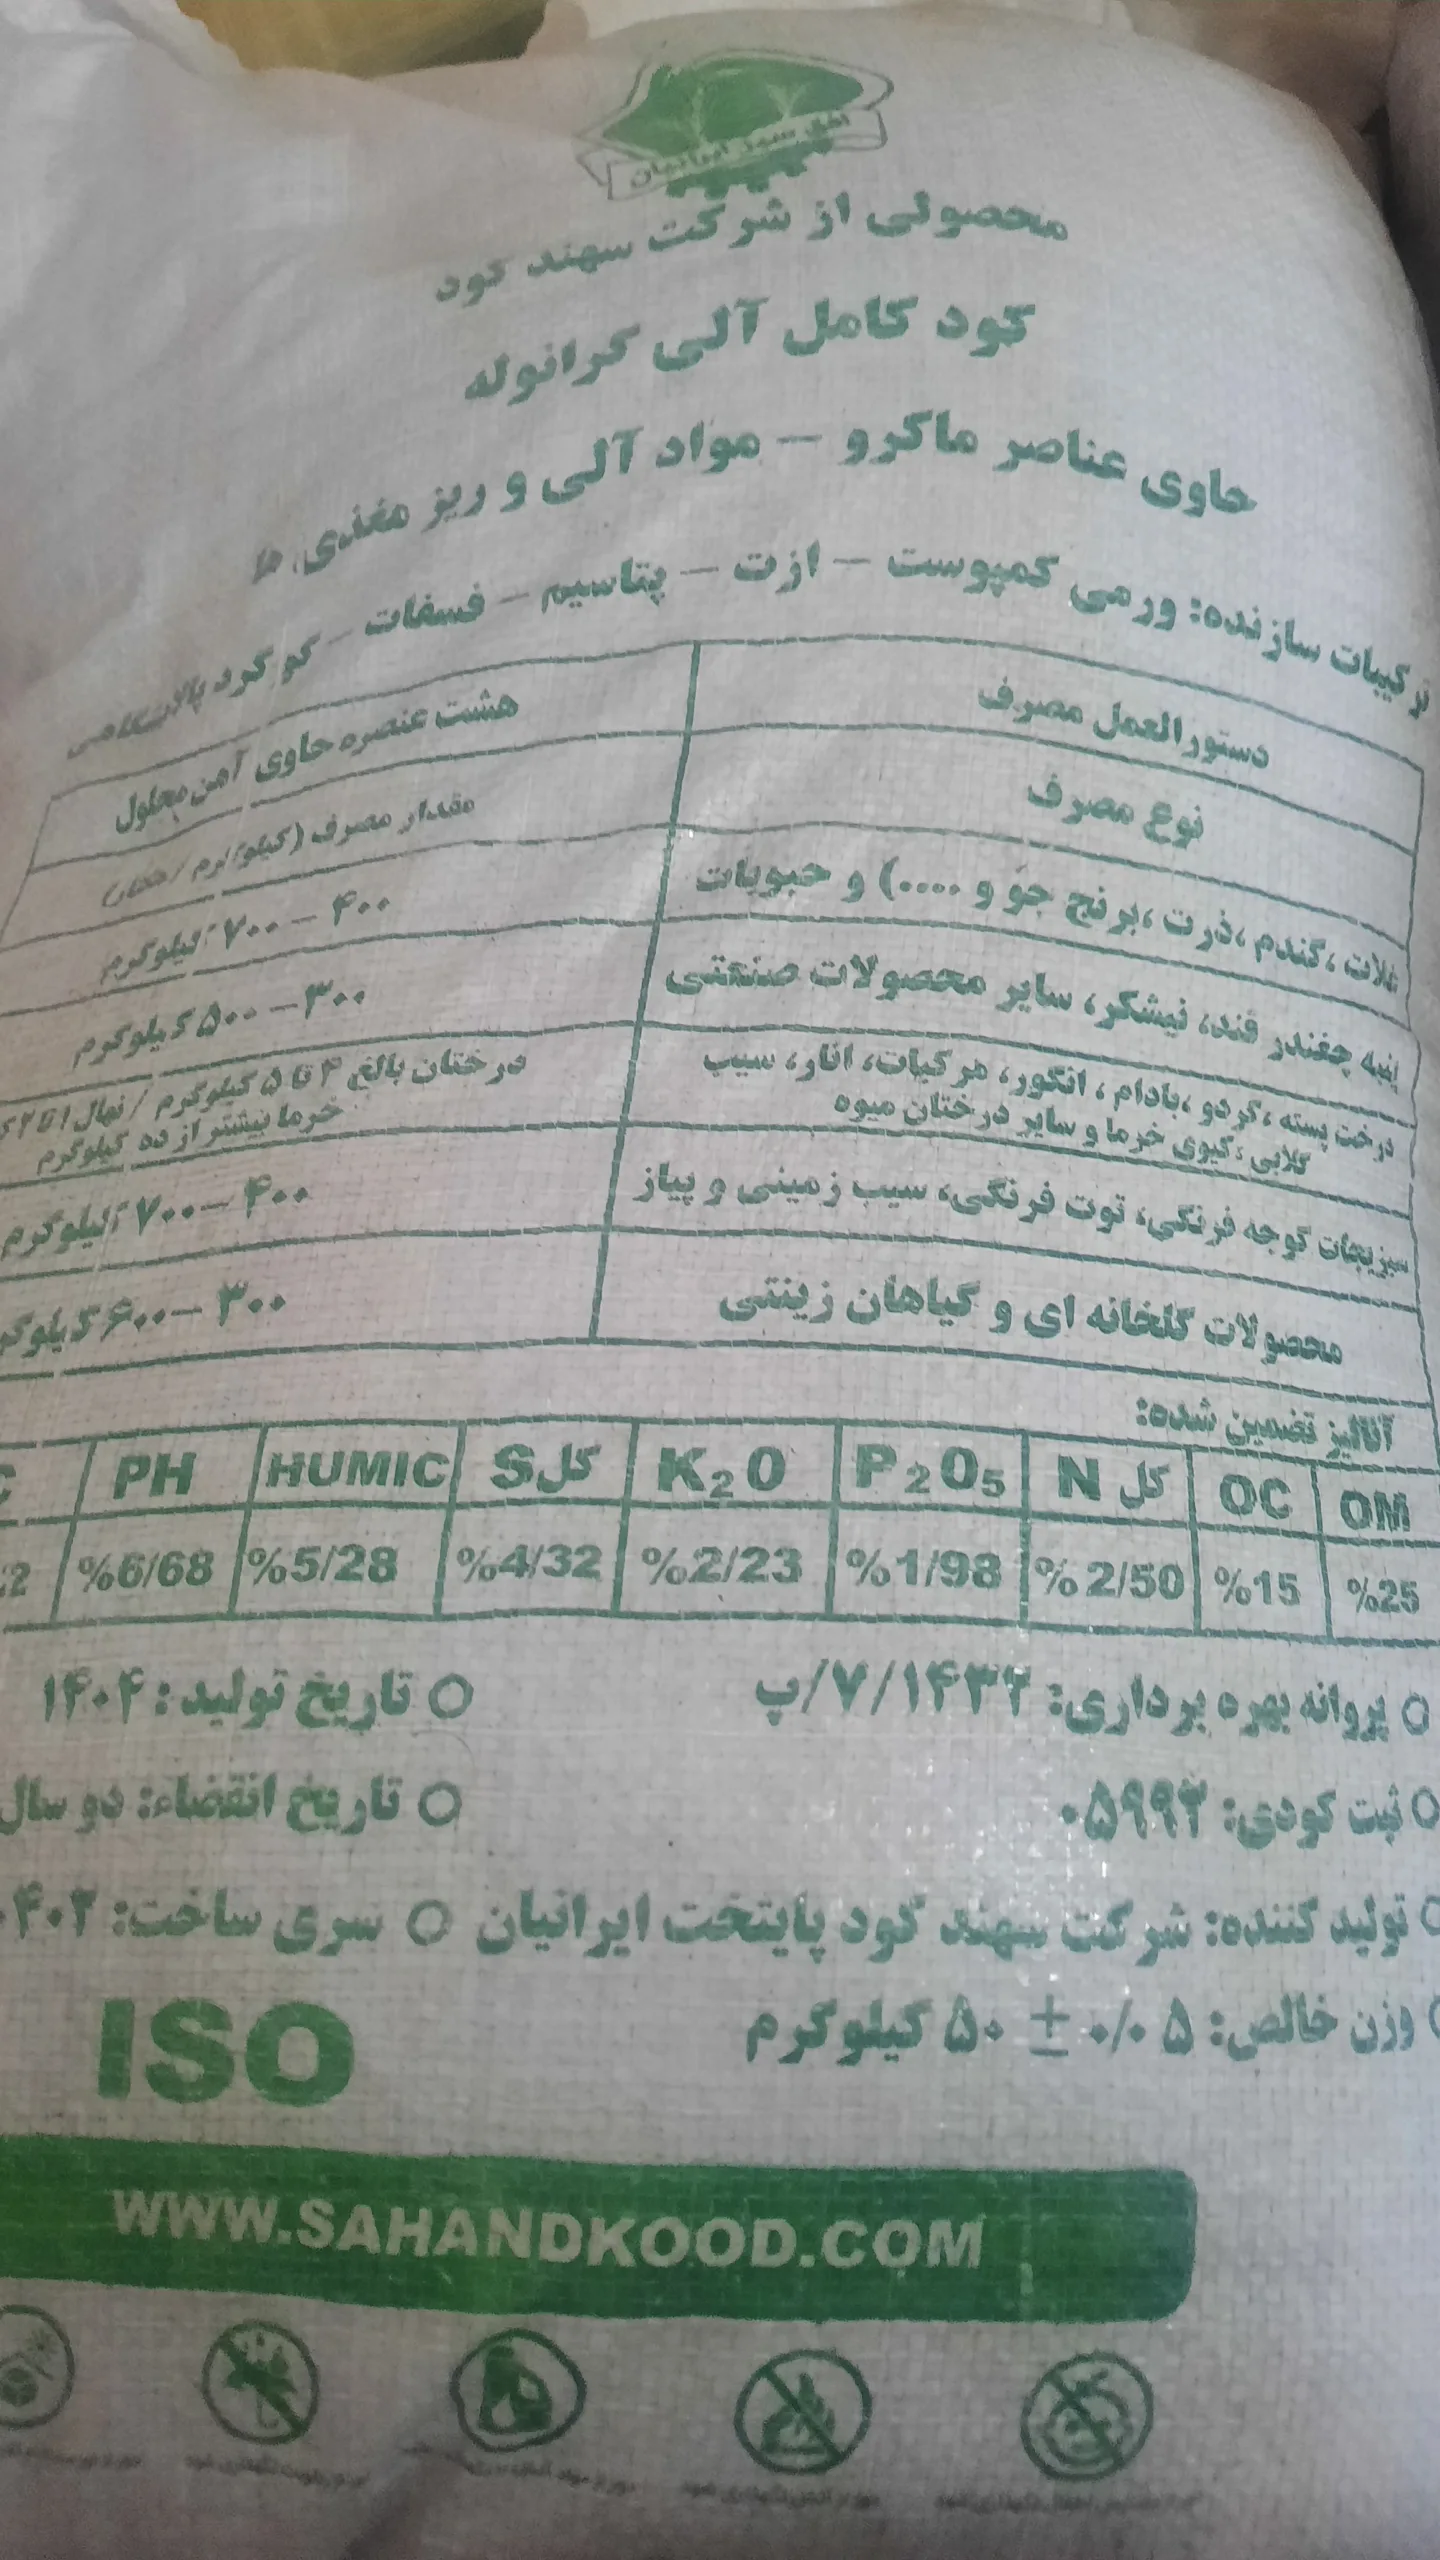 افق سبز ایرانیان
محصولی از شرکت سهند کود
کود کامل آلی گرانوله
حاوی عناصر ماکرو – مواد آلی و ریز مغذی ها
ترکیبات سازنده: ورمی کمپوست – ازت – پتاسیم – فسفات – گوگرد پالایشگاهی
دستورالعمل مصرف هشت عنصره حاوی آهن محلول
نوع مصرف مقدار مصرف (کیلوگرم / هکتار)
غلات ،گندم ،ذرت ،برنج جو و ....) و حبوبات ۴۰۰ – ۷۰۰ کیلوگرم
پنبه چغندر قند، نیشکر، سایر محصولات صنعتی ۳۰۰ – ۵۰۰ کیلوگرم
درخت پسته ،گردو ،بادام ، انگور، مرکبات، انار، سیب درختان بالغ ۴ تا ۵ کیلوگرم / نهال ۱ تا ۲
گلابی ،کیوی خرما و سایر درختان میوه خرما بیشتر از ده کیلوگرم
سبزیجات گوجه فرنگی، توت فرنگی، سیب زمینی و پیاز ۴۰۰ – ۷۰۰ کیلوگرم
محصولات گلخانه ای و گیاهان زینتی ۳۰۰ – ۶۰۰ کیلوگر
آنالیز تضمین شده:
PH HUMIC کل S K₂O P₂O₅ کل N OC OM
%6/68 %5/28 %4/32 %2/23 %1/98 %2/50 %15 %25
پروانه بهره برداری: ۷/۱۴۳۲/پ تاریخ تولید: ۱۴۰۴
ثبت کودی: ۰۵۹۹۲ تاریخ انقضاء: دو سال
تولید کننده: شرکت سهند کود پایتخت ایرانیان سری ساخت: ۰۴۰۲
وزن خالص: ۰/۰۵ ± ۵۰ کیلوگرم
ISO
WWW.SAHANDKOOD.COM